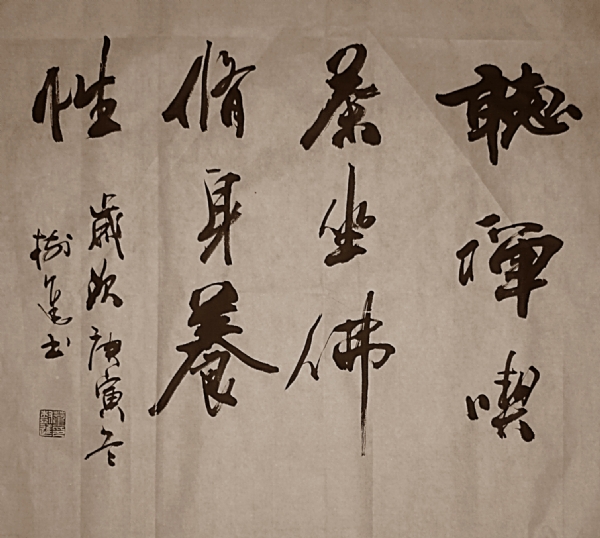 聽禪喫
茶坐佛
脩身養
性
歲次庚寅冬
樹 书